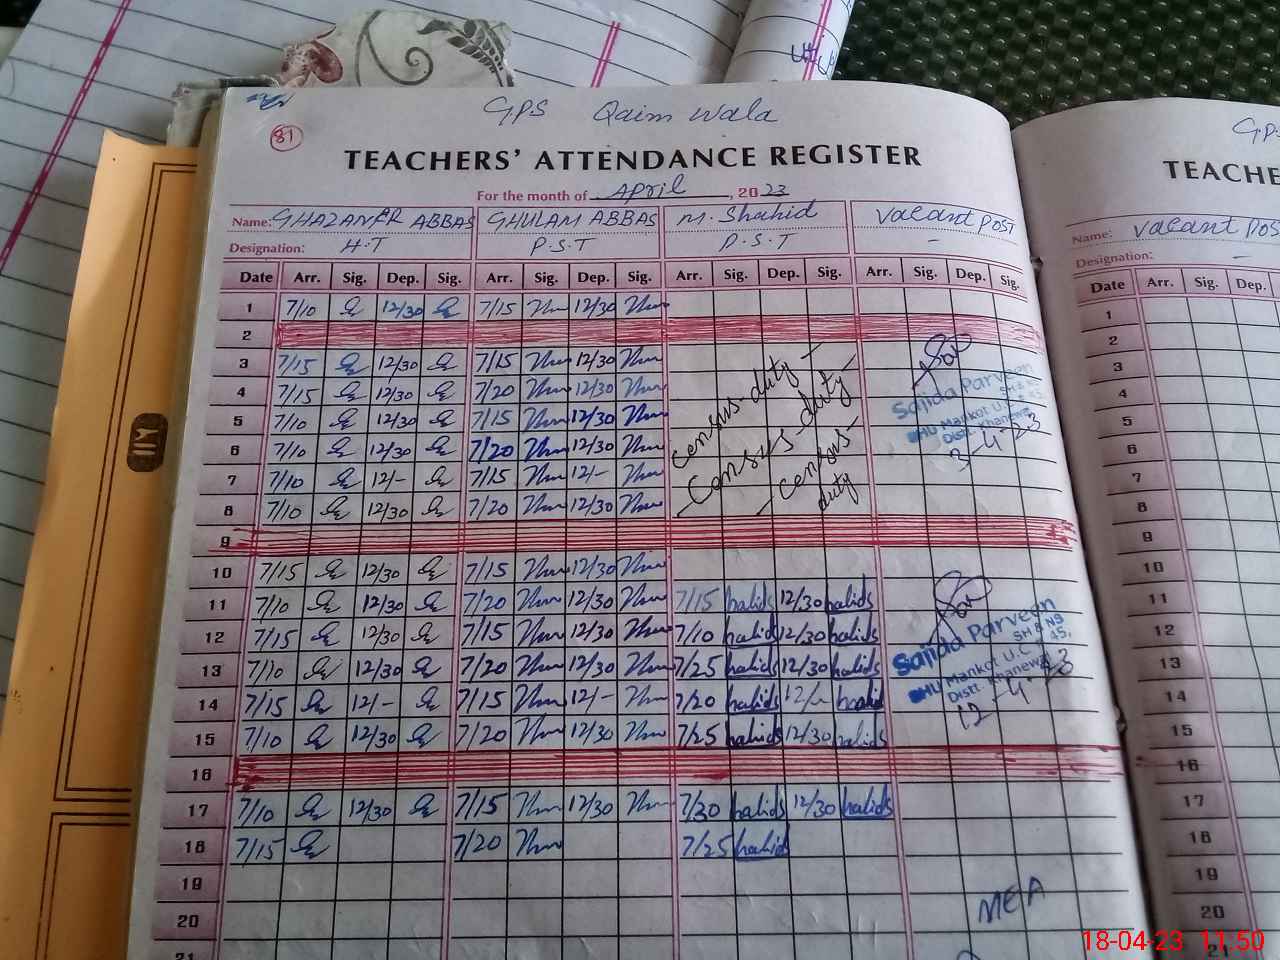 GPS Qaim Wala
81
TEACHERS' ATTENDANCE REGISTER
For the month of April, 2023
Name: GHAZANFR ABBAS GHULAM ABBAS M. Shahid Vacant Post
Designation: H.T P.S.T P.S.T -
Date Arr. Sig. Dep. Sig. Arr. Sig. Dep. Sig. Arr. Sig. Dep. Sig. Arr. Sig. Dep. Sig.
1 7/10 12/30 7/15 12/30
2
3 7/15 12/30 7/15 12/30
4 7/15 12/30 7/20 12/30
5 7/10 12/30 7/15 12/30
6 7/10 12/30 7/20 12/30
7 7/10 12/- 7/15 12/-
8 7/10 12/30 7/20 12/30
census-duty -
- Census-duty -
- census-
duty
Sajida Parveen
SH & NS
BHU Mankot U.C 45,
Distt. Khanewal
3-4-23
9
10 7/15 12/30 7/15 12/30
11 7/10 12/30 7/20 12/30 7/15 halids 12/30 halids
12 7/15 12/30 7/15 12/30 7/10 halids 12/30 halids
13 7/10 12/30 7/20 12/30 7/25 halids 12/30 halids
14 7/15 12/- 7/15 12/- 7/20 halids 12/- halid
15 7/10 12/30 7/20 12/30 7/25 halids 12/30 halids
Sajida Parveen
SH & NS
BHU Mankot U.C 45,
Distt. Khanewal
12-4-23
16
17 7/10 12/30 7/15 12/30 7/30 halids 12/30 halids
18 7/15 7/20 7/25 halid
19
20
21
MEA
GPS
TEACHE
Name: Vacant Pos
Designation: -
Date Arr. Sig. Dep.
1
2
3
4
5
6
7
8
9
10
11
12
13
14
15
16
17
18
19
20
21
18-04-23 11:50